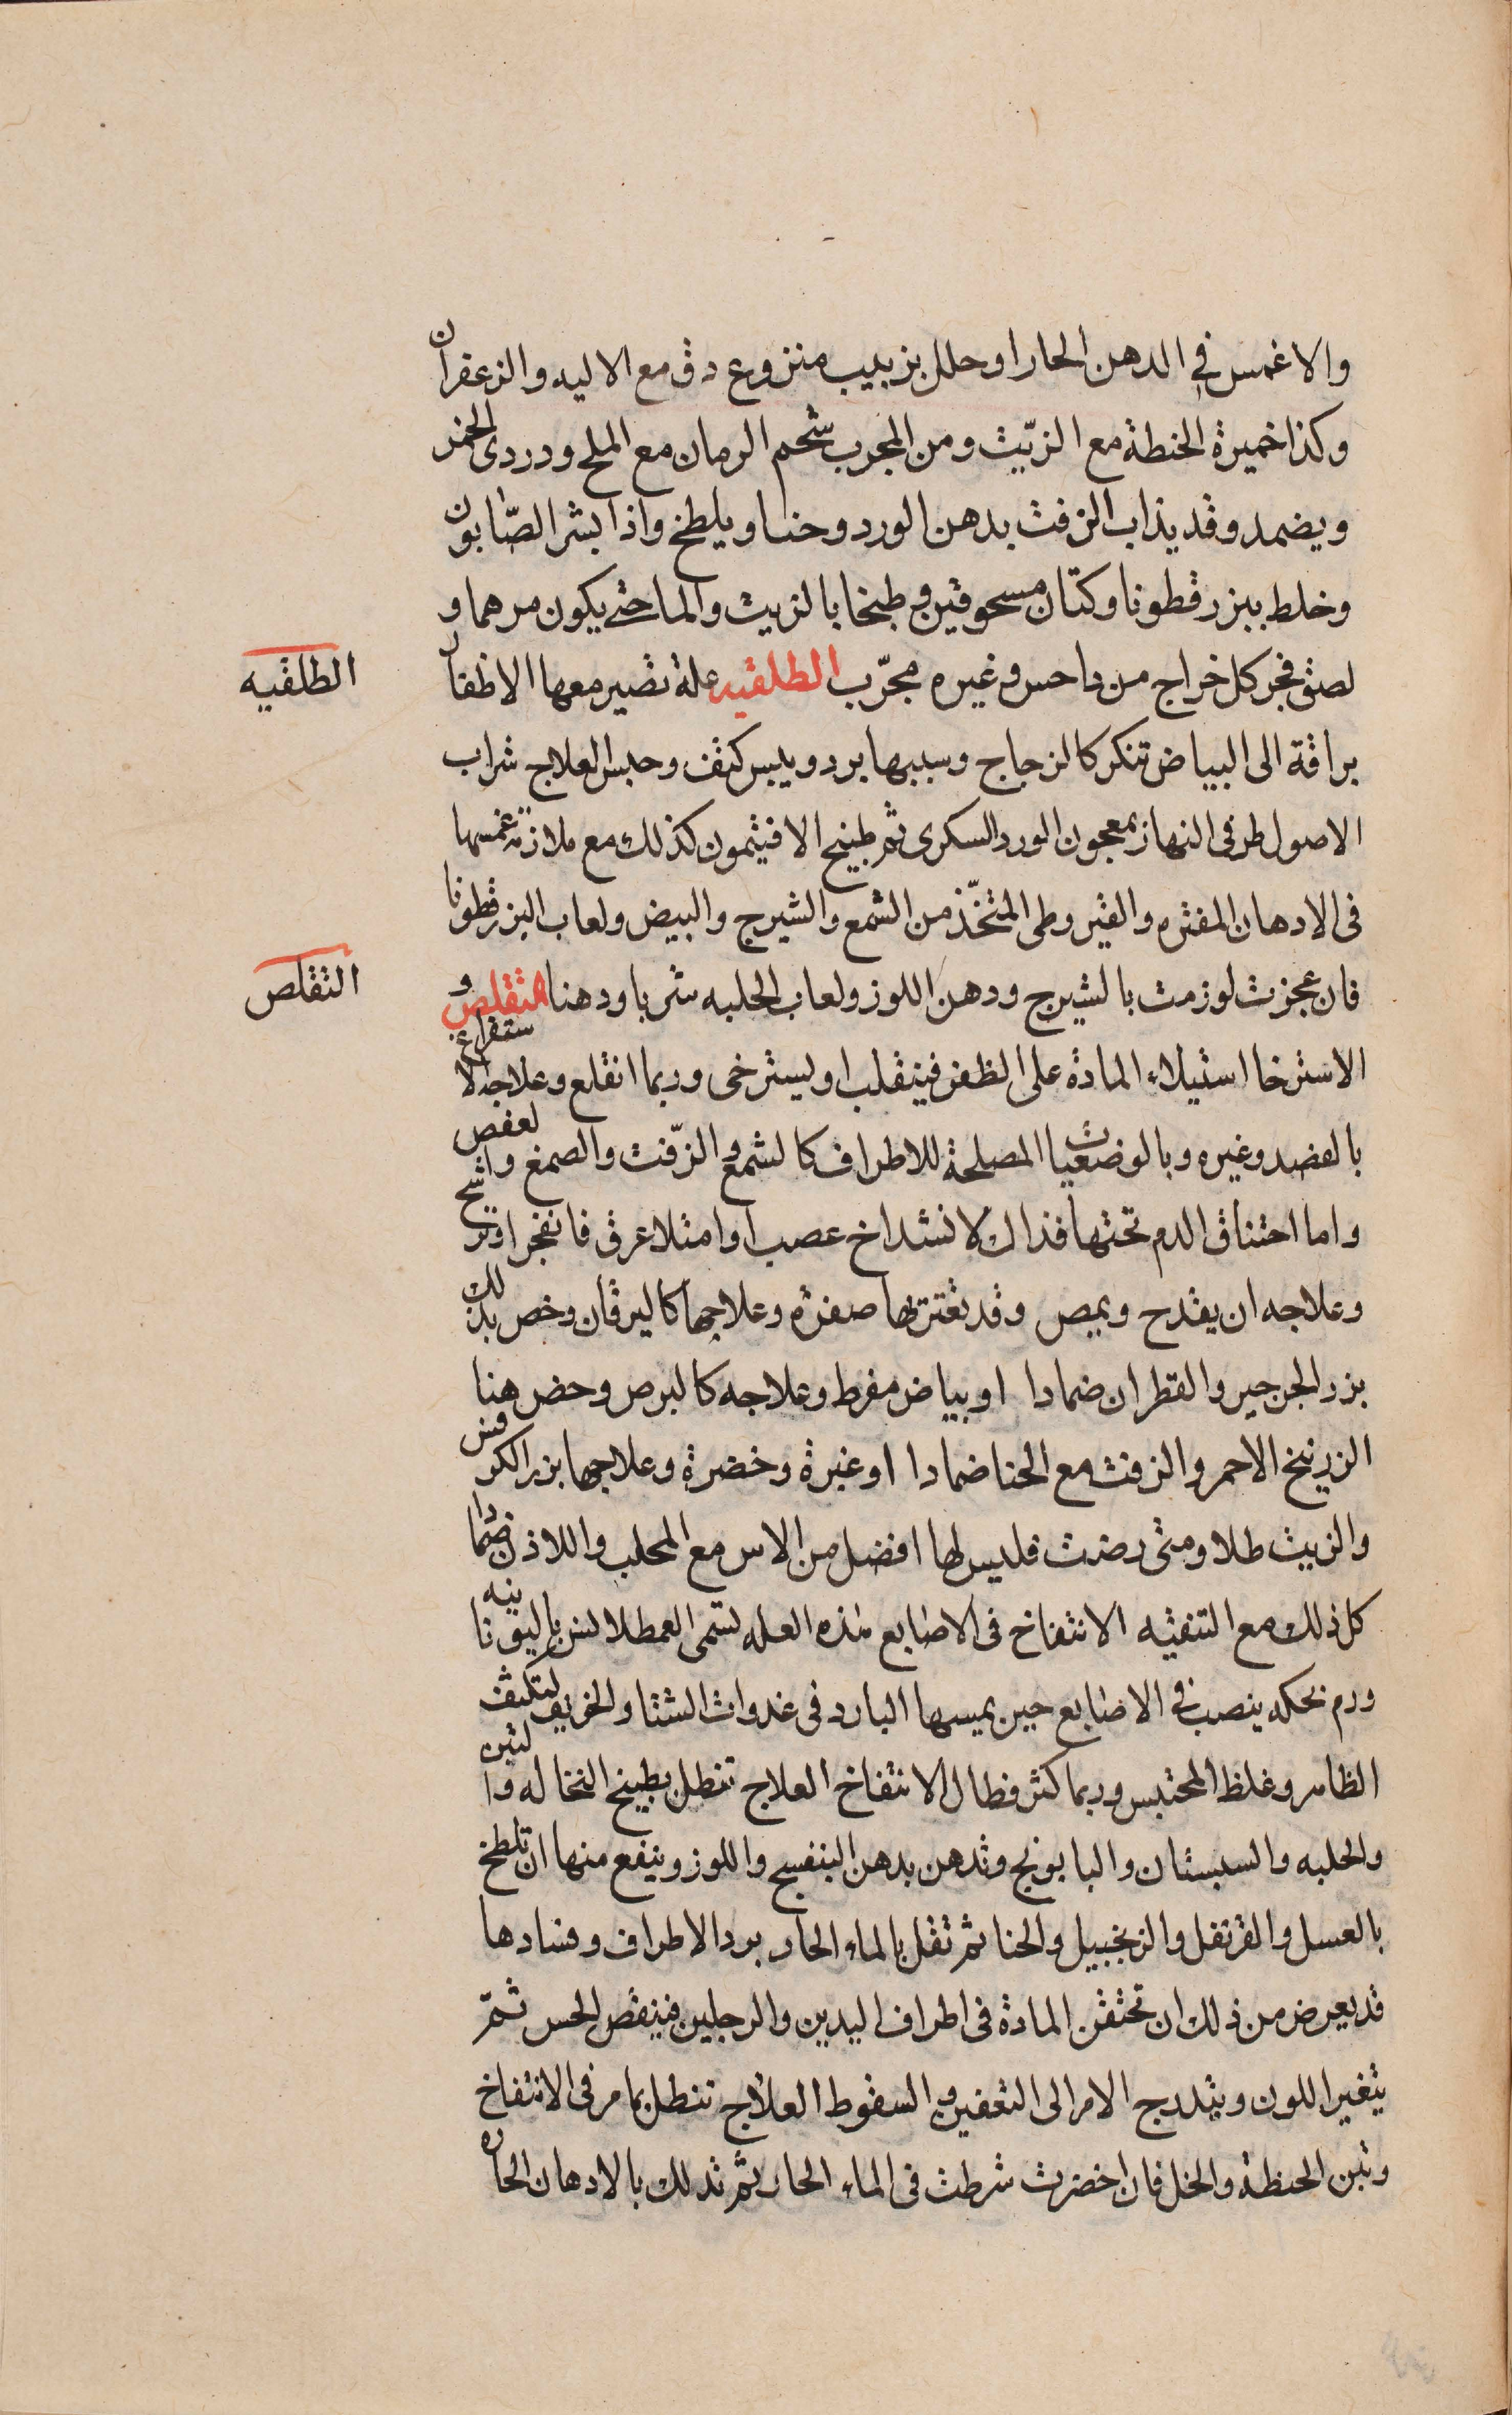 والا غمس في الدهن الحار او حلل بزبيب منزوع دق مع الاليه والزعفران
وكذا خميرة الحنطة مع الزّيت ومن المجرب شحم الرمان مع الملح ودردى الخمر
ويضمد وقد يذاب الزفت بدهن الورد وحنا ويلطخ واذا بشر الصّابون
وخلط ببزر قطونا وكتان مسحوقين وطبخا بالزيت والما حتى يكون مرهما و
لصق فجر كل خراج من داحس وغيره مجرّب الطلقيه علة تصير معها الاظفار
الطلقيه
براقة الى البياض تنكر كالزجاج وسببها برد ويبس كثف وحبس العلاج شراب
الاصول طرفى النهار بمعجون الورد السكرى ثم طبيخ الافيثمون كذلك مع ملازمة غمسها
فى الادهان المفتره والقيروطى المتخّذ من الشمع والشيرج والبيض ولعاب البزرقطونا
فان عجزت لوزمت بالشيرج ودهن اللوز ولعاب الحلبه شربا ودهنا التقلص و
التقلص
الاسترخا استيلاء المادة على الظفر فينقلب او يسترخى وربما انقلع وعلاجه الاستفراغ
بالفصد وغيره وبالوضعيات المصلحة للاطراف كالشمع والزّفت والصمغ والعفص
واما احتناق الدم تحتها فذاك لانشداخ عصب او امتلا عرق فانفجر او ترشح
وعلاجه ان يقدح ويمص وقد تعتريها صفره وعلاجها كاليرقان وخص بذلك
بزر الجرجير والقطران ضمادا او بياض مفرط وعلاجه كالبرص وخص هنا
الزرنيخ الاحمر والزفت مع الحنا ضمادا او غبرة وخضرة وعلاجها بزر الكرفس
والزيت طلا ومتى رضت فليس لها افضل من الاس مع المحلب واللاذن ضمادا
كل ذلك مع التنقيه الانتفاخ فى الاصابع هذه العله تسمى العمطلالس باليونانيه
ورم بحكه ينصب في الاصابع حين يمسها البارد فى غدوات الشتا والخريف لتكثف
الظاهر وغلظ المحتبس وربما كثر فطال الانتفاخ العلاج تنطل بطبيخ النخاله والتين
والحلبه والسبستان والبابونج وتدهن بدهن البنفسج واللوز وينفع منها ان تلطخ
بالعسل والقرنفل والزنجبيل والحنا ثم تغل بالماء الحار برد الاطراف وفسادها
قد يعرض من ذلك ان تحتقن المادة فى اطراف اليدين والرجلين فينقص الحس ثمّ
يتغير اللون ويتدرج الامر الى التعفين والسقوط العلاج تنطل بما مر فى الانتفاخ
وتبن الحنطة والخل فان اخضرت شرطت فى الماء الحار ثم تدلك بالادهان الحاره